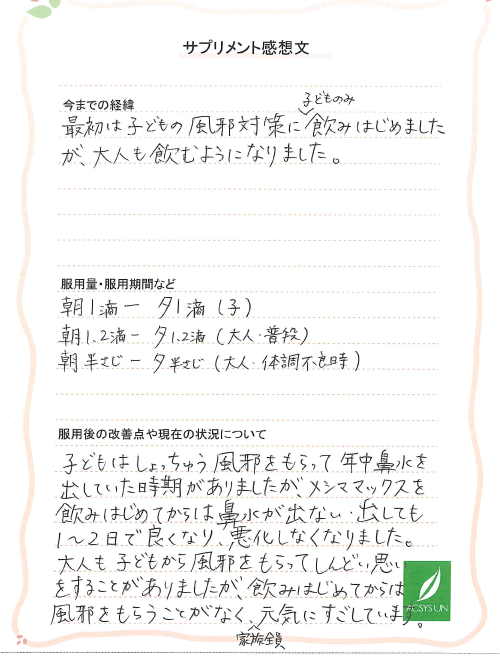 サプリメント感想文
今までの経緯
子どものみ
最初は子どもの風邪対策に飲みはじめました
が、大人も飲むようになりました。
服用量・服用期間など
朝1滴ー夕1滴(子)
朝1、2滴ー夕1、2滴(大人・普段)
朝半さじー夕半さじ(大人・体調不良時)
服用後の改善点や現在の状況について
子どもはしょっちゅう風邪をもらって年中鼻水を
出していた時期がありましたが、メシママックスを
飲みはじめてからは鼻水が出ない・出しても
1〜2日で良くなり、悪化しなくなりました。
大人も子どもから風邪をもらってしんどい思い
をすることがありましたが、飲みはじめてからは
風邪をもらうことがなく、元気にすごしています。
家族全員
ACSYSUN